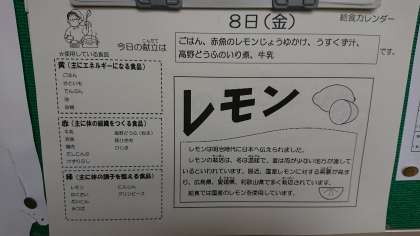 8日(金)
給食カレンダー
今日の献立は
ごはん、赤魚のレモンじょうゆかけ、うすくず汁、
高野どうふのいり煮、牛乳
です。
☆使用している食品
黄(主にエネルギーになる食品)
ごはん
でんぷん
油
砂糖
赤(主に体の組織をつくる食品)
牛乳
赤魚
鶏肉
ひじき
緑(主に体の調子を整える食品)
レモン
にんじん
はくさい
グリンピース
レモン
レモンは明治時代に日本へ伝えられました。
レモンの栽培は、冬は温暖で、夏は雨が少ない地方が適して
いるといわれています。最近、国産レモンに対する需要が高ま
り、広島県、愛媛県、和歌山県で多く栽培されています。
給食では国産のレモンを使用しています。